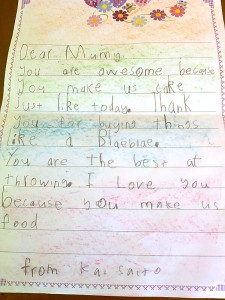 Dear Mumy
you are awesome because
you make us cake
Just like today. Thank
you for buying things
like a
You are the best at
throwing. I Love you
because you make us
food
from Kai Saito